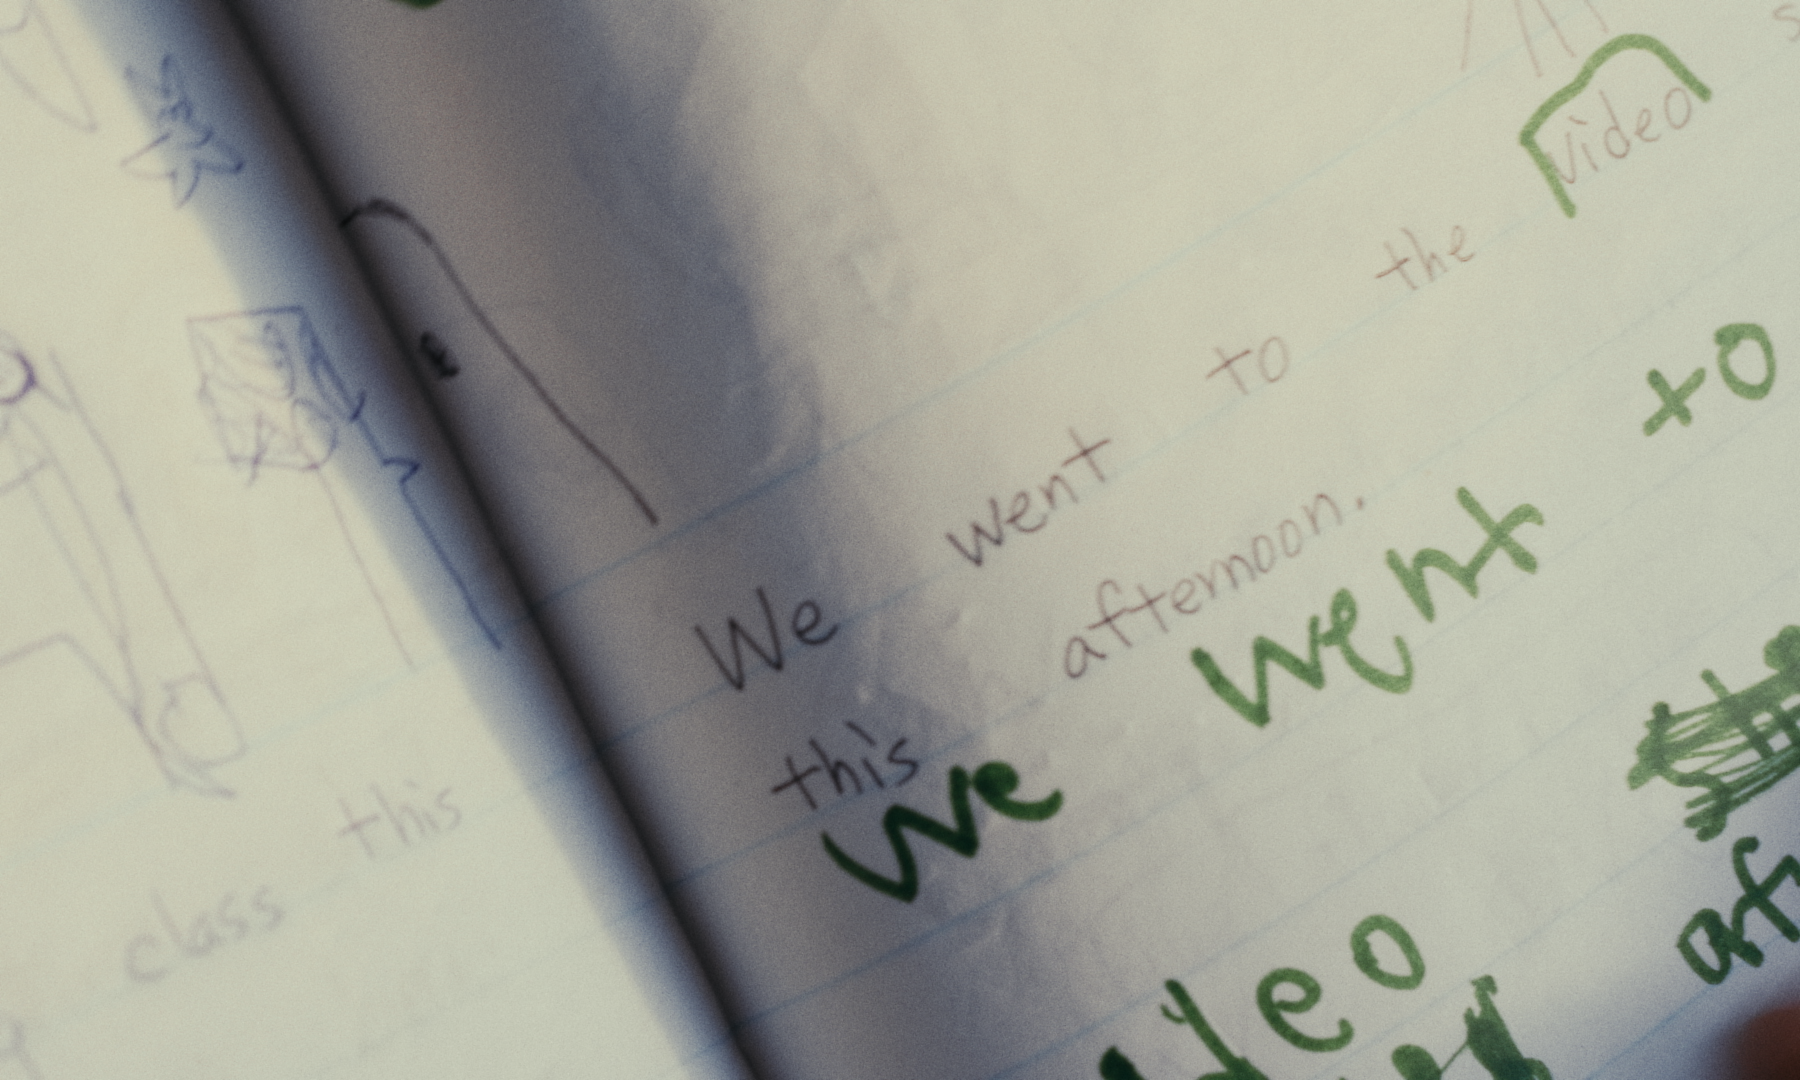 We went to the video
this afternoon.
We went to
deo
af
this
class